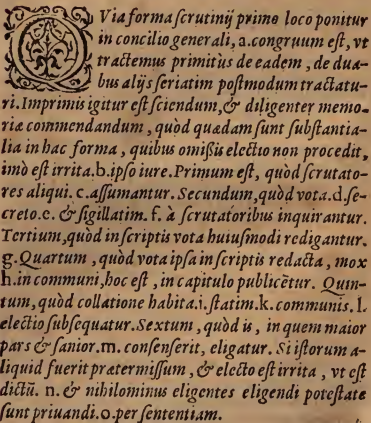 QVia forma ſcrutinij primo loco ponitur
in concilio generali, a.congruum eſt, vt
tractemus primitus de eadem, de dua-
bus alijs ſeriatim poſtmodum tractatu-
ri.Imprimis igitur eſt ſciendum,& diligenter memo-
riæ commendandum, quòd quædam ſunt ſubſtantia-
lia in hac forma, quibus omiſſis electio non procedit,
imò eſt irrita.b.ipſo iure.Primum eſt, quòd ſcrutato-
res aliqui. c.aſſumantur. Secundum,quòd vota.d.ſe-
creto.e. & ſigillatim. f. à ſcrutatoribus inquirantur.
Tertium,quòd in ſcriptis vota huiuſmodi redigantur.
g.Quartum, quòd vota ipſa in ſcriptis redacta, mox
h.in communi,hoc eſt, in capitulo publicētur. Quin-
tum,quòd collatione habita.i.ſtatim.k.communis.l.
electio ſubſequatur.Sextum, quòd is, in quem maior
pars & ſanior.m.conſenſerit, eligatur. Si iſtorum a-
liquid fuerit prætermiſſum, & electo eſt irrita, vt eſt
dictū. n.& nihilominus eligentes eligendi poteſtate
ſunt priuandi.o.per ſententiam.